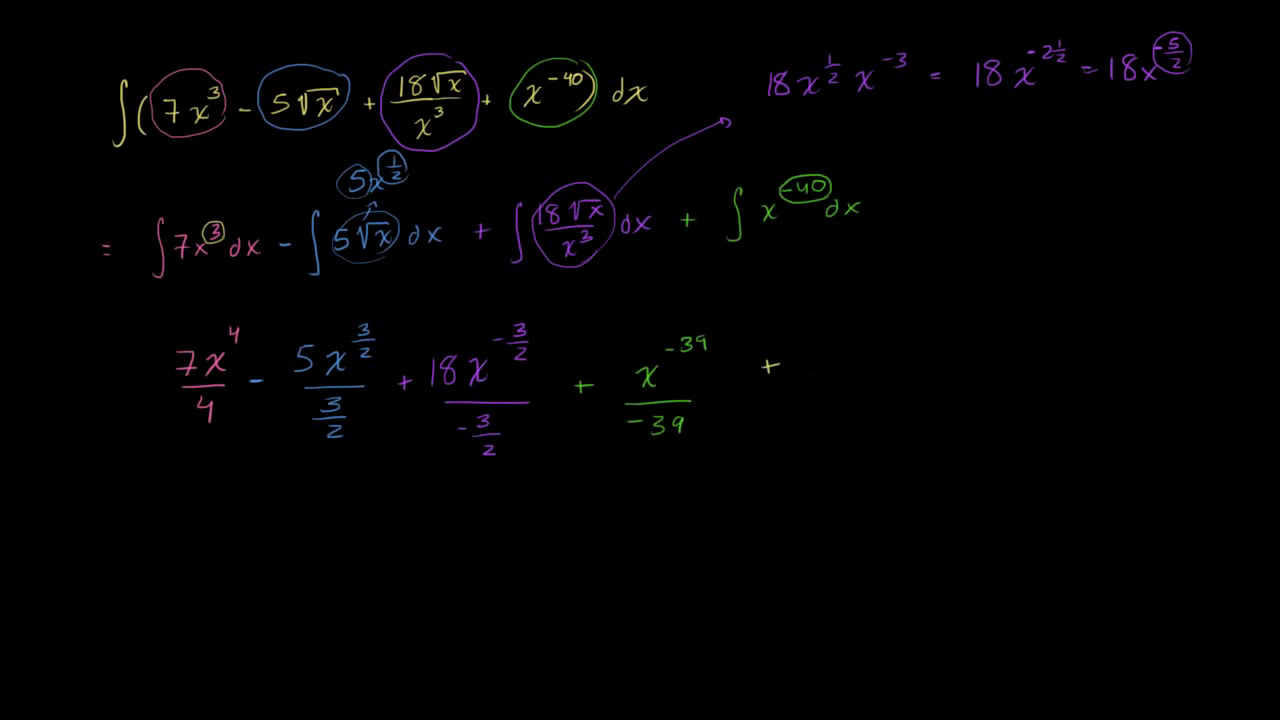 ∫(7x³ - 5√x + 18√x/x³ + x⁻⁴⁰) dx
18x^(1/2) x⁻³ = 18x^(-2 1/2) = 18x^(-5/2)
5x^(1/2)
= ∫7x³dx - ∫5√x dx + ∫18√x/x³ dx + ∫x⁻⁴⁰dx
7x⁴/4 - 5x^(3/2)/(3/2) + 18x^(-3/2)/(-3/2) + x⁻³⁹/-39 +